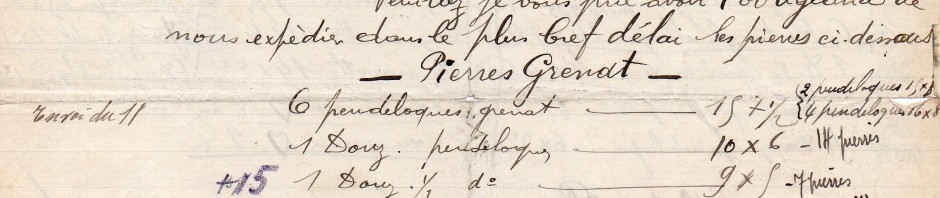 Veuillez je vous prie avoir l'obligeance de
nous expédier dans le plus bref délai les pierres ci-dessous
— Pierres Grenat —
Envoi du 18 6 pendeloques grenat — 15 × 7 1/2 (2 pendeloques 15 × 8
{4 pendeloques 16 × 8
1 Douz. pendeloques 10 × 6 - 14 pierres
+15 1 Douz. 1/2 do — 9 × 5 - 7 pierres